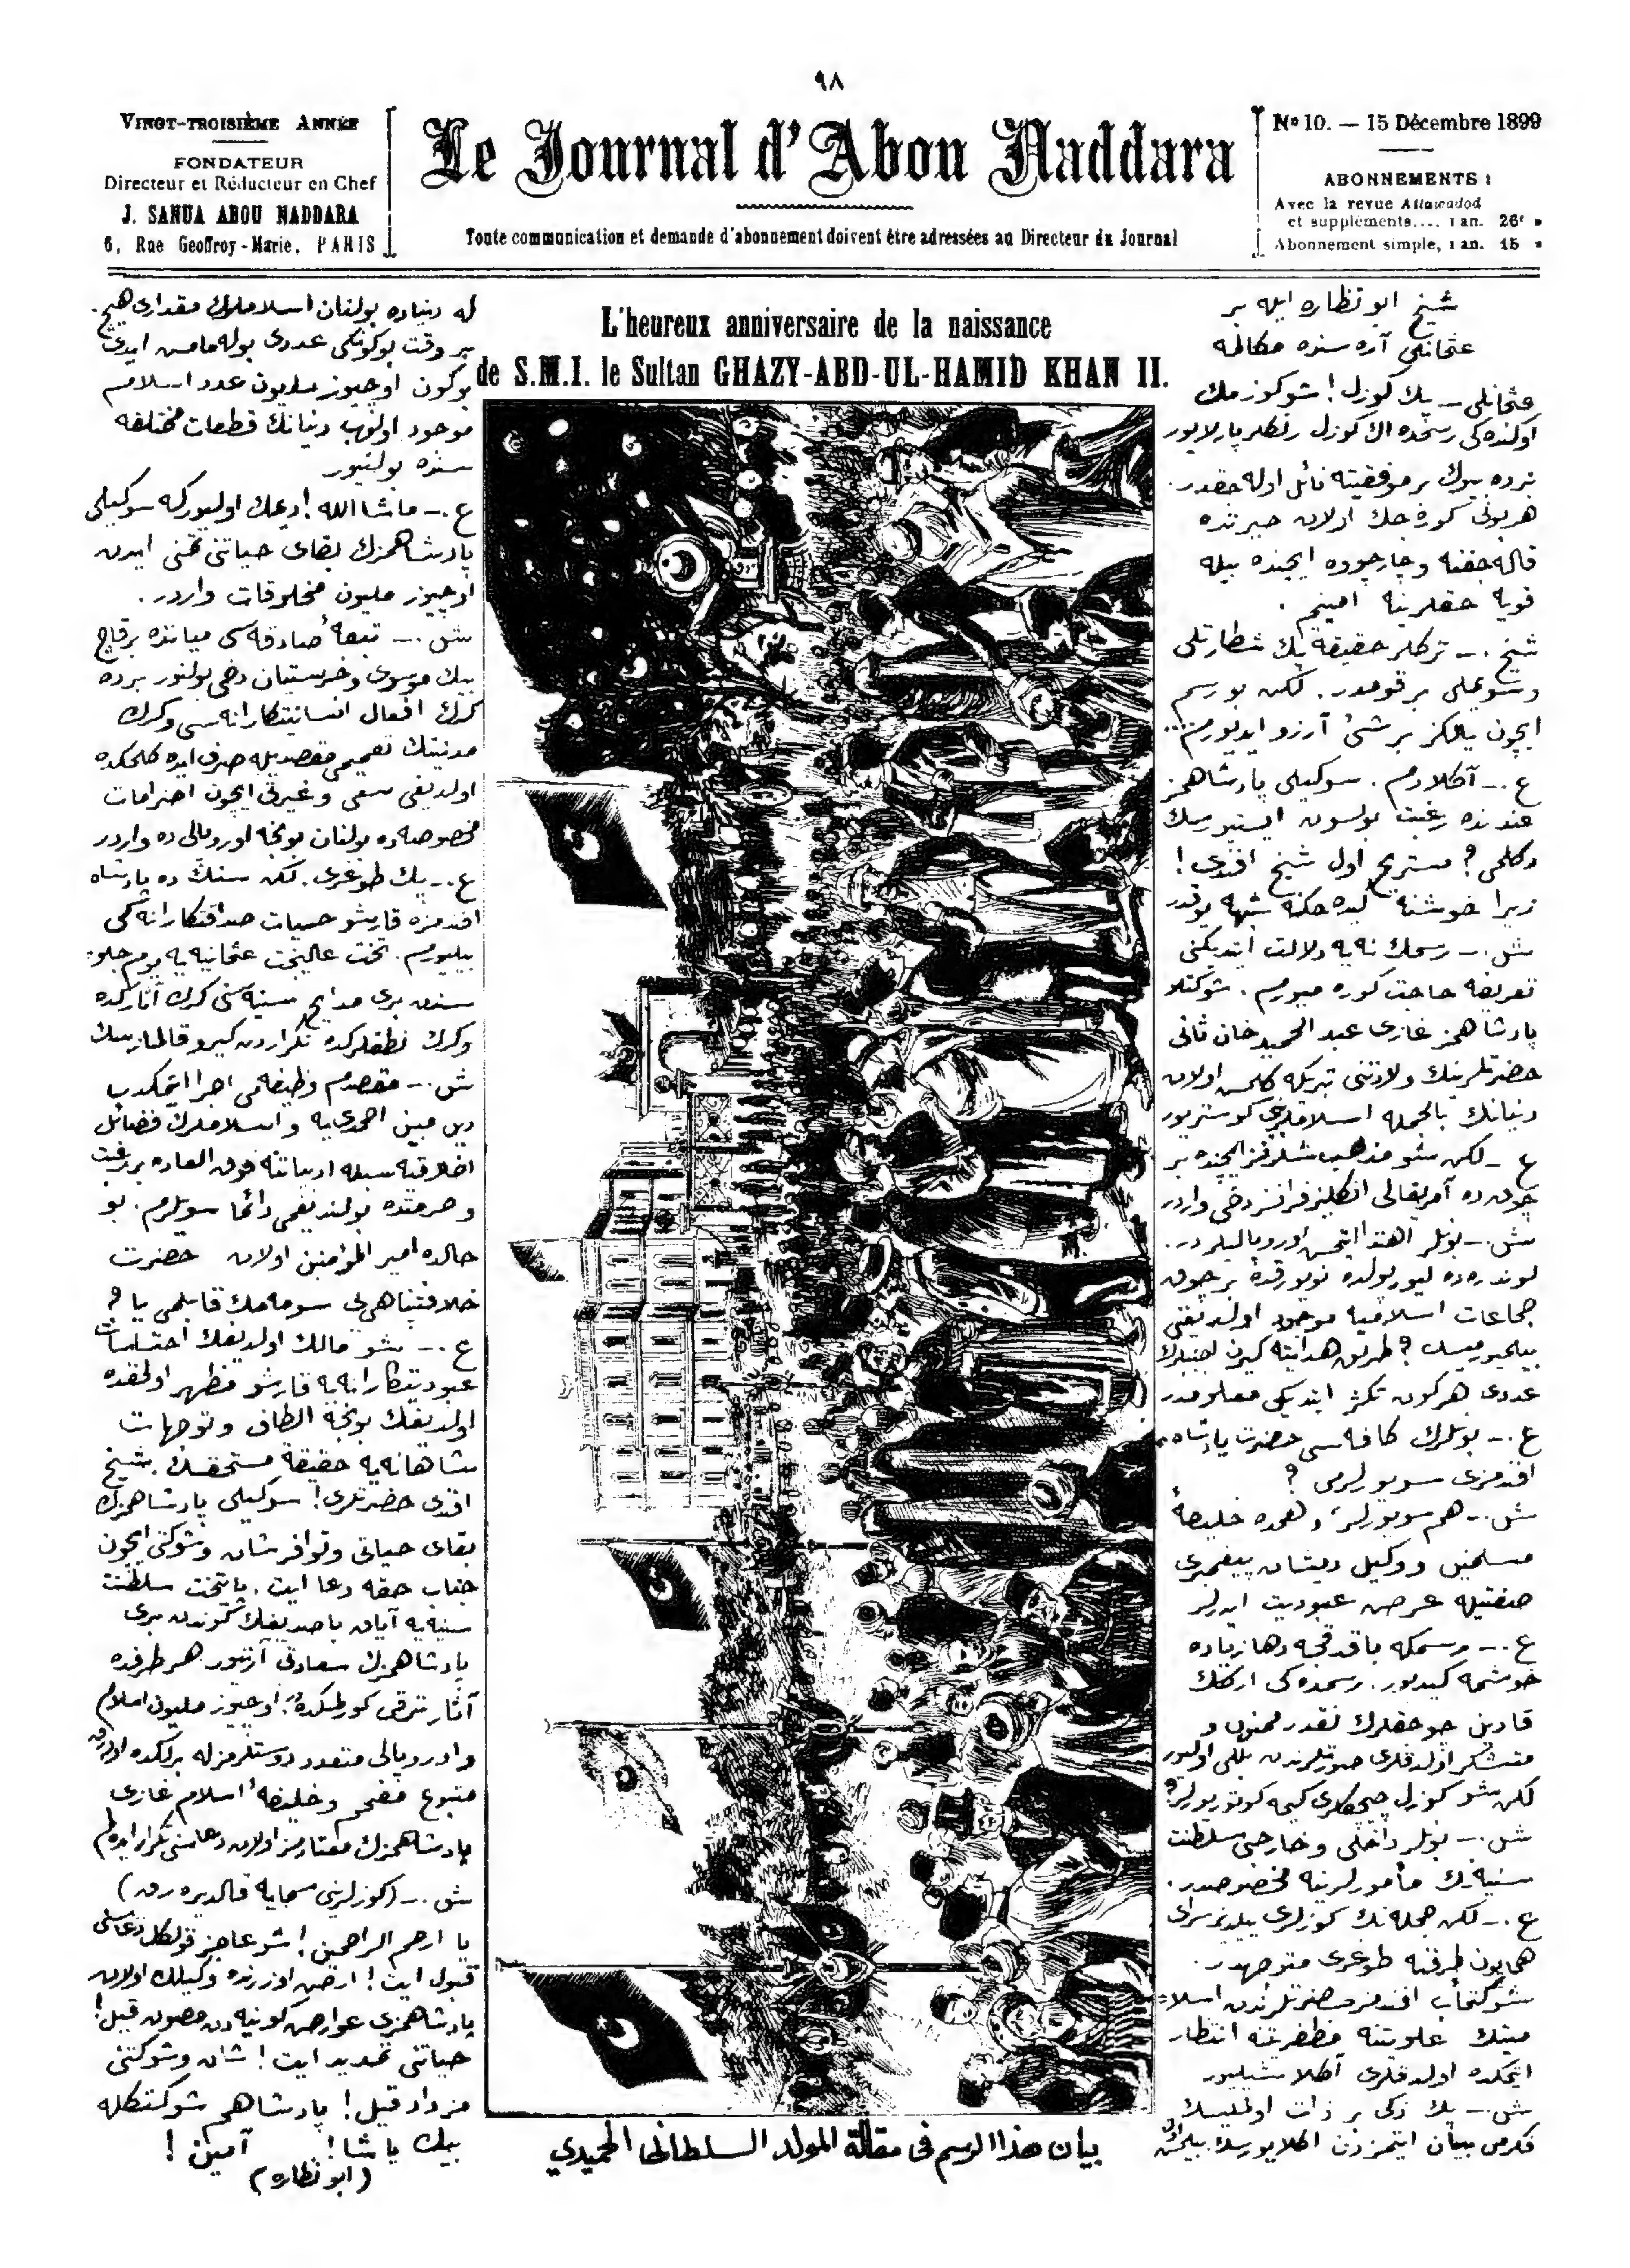 ٩٨
VINGT-TROISIÈME ANNÉE
FONDATEUR
Directeur et Rédacteur en Chef
J. SANUA ABOU NADDARA
6, Rue Geoffroy-Marie, PARIS
Le Journal d'Abou Naddara
Toute communication et demande d'abonnement doivent être adressées au Directeur du Journal
Nº 10. — 15 Décembre 1899
ABONNEMENTS :
Avec la revue Attawadod
et suppléments.... 1 an. 26f »
Abonnement simple, 1 an. 15 »
L'heureux anniversaire de la naissance
de S.M.I. le Sultan GHAZY-ABD-UL-HAMID KHAN II.
شيخ ابو نظاره ايله بر
عثمانلى آره سنده مكالمه
عثمانلى – پك كوزل! شو كوزمك
اولنده كى رسمده اڭ كوزل رنكلر پارلايور
نرده بيوك بر موفقيته نائل اوله جقدر.
هر بونى كوره جك اولان حيرتده
قاله جغنه و چارچوه ايچنده بيله
قويه جقلرينه امينم.
شيخ .– تركلر حقيقة پك شطارتلى
وسوملى بر قومدر. لكن بو رسم
ايچون يالكز بر شئ آرزو ايديورم...
ع .– آكلادم. سوكيلى پادشاهمز
عندنده رغبت بولسون ايستيورسك
دكلمى؟ مستريح اول شيخ افندى!
زيرا خوشنه كيده جكنه شبهه يوقدر
ش .– رسمك نه يه دلالت ايتديكنى
تعريفه حاجت كوره ميورم. شوكتلو
پادشاهمز غازى عبد الحميد خان ثانى
حضرتلرينك ولادتنى تبريكه كلمش اولان
دنيانك بالجمله اسلاملرينى كوستريور
ع – لكن شو مذهب شلرڭز ايچنده بر
چوق ده آمريقالى انكليز فرانسز دخى واردر
ش .– بونلر اهتدا ايتمش اوروپاليلردر.
لوندره ده ليورپولده نويورقده بر چوق
جماعات اسلاميه موجود اولديغنى
بيلميورميسك؟ طريق هدايته كيرن اجنبيلرك
عددى هركون تكثر ايتديكى معلومدر
ع .– بونلرك كافه سى حضرت پادشاه
افندمزى سويورلرمى؟
ش .– هم سويورلر، و همده خليفۀ
مسلمين و وكيل ذيشان پيغمبرى
صفتيله عرض عبوديت ايدرلر
ع .– رسمكه باقدقجه دها زياده
خوشمه كيديور. رسمده كى اركك
قادين چوجقلرك نقدر ممنون و
متشكر اولدقلرى صورتلرندن بللى اوليور
لكن شو كوزل چيچكلرى كيمه كوتوريورلر؟
ش .– بونلر داخلى و خارجى سلطنت
سنيه نك مأمورلرينه مخصوصدر.
ع .– لكن جمله نك كوزلرى ييلديز سراى
همايون طرفنه طوغرى متوجهدر.
شوكتمآب افندمز حضرتلرندن اسلا
ميتك علويتنه مظفريتنه انتظار
ايتمكده اولدقلرى آكلاشيليور
ش .– پك ذكى بر ذات اولمليسك
فكرمى بيان ايتمزدن اكلايورسك.
بيان هذا الرسم فى مقالة المولد السلطانى الحميدي
كه دنياده بولنان اسلاملرك مقدارى هيچ
بر وقت بوكونكى عددى بوله مامش ايدى
بوكون اوچيوز مليون عدد اسلام
موجود اولوب دنيانك قطعات مختلفه
سنده بولنيور
ع .– ماشا الله! ديمك اوليوركه سوكيلى
پادشاهمزك بقاى حياتنى تمنى ايدن
اوچيوز مليون مخلوقات واردر.
ش .– تبعۀ صادقه سى مياننده برقاچ
بيك موسوى و خرستيان دخى بولنور برده
كرك افعال انسانيتكارانه سى و كرك
مدنيتك تعميمى مقصديله صرف ايده كلمكده
اولديغى سعى و غيرتى ايچون احترامات
مخصوصه ده بولنان بونجه اوروپالى ده واردر
ع .– پك طوغرى. لكن سنك ده پادشاه
افندمزه قارشو حسيات صداقتكارانه كى
بيليورم. تخت عاليبخت عثمانيه يه يوم جلو
سندن برى مدايح سنيه سنى كرك آثاركده
و كرك نطقلركده تكراردن كيرو قالمازسك
ش .– مقصدم وظيفه مى اجرا ايتمكدر
دين مبين احمدى يه و اسلاملرك فضائل
اخلاقيه سيله ادبياتنه فوق العاده بر رغبت
و حرمتده بولنديغمى دائما سويلرم. بو
حالده امير المؤمنين اولان حضرت
خلافتپناهى يى سومامك قابلمى يا؟
ع .– شو مالك اولديغك احتساسات
عبوديتكارانه يه قارشو مظهر اولمقده
اولديغك بونجه الطاف و توجهات
شاهانه يه حقيقة مستحقسك. شيخ
افندى حضرتلرى! سوكيلى پادشاهمزك
بقاى حياتى و توافر شان و شوكتى ايچون
جناب حقه دعا ايت. پايتخت سلطنت
سنيه يه آياق باصديغك كوندن برى
پادشاهمزك سعادتى آرتيور هر طرفده
آثار ترقى كورلمكده. اوچيوز مليون اسلام
و اوروپالى متعدد دوستلرمزله برلكده اوله رق
متبوع مفخم و خليفۀ اسلام غازى
پادشاهمزك معتادمز اولان دعاسنى تكرار ايده لم
ش .– (كوزلرينى سمايه قالديره رق)
يا ارحم الراحمين! شو عاجز قولكك دعاسنى
قبول ايت! ارض اوزرنده وكيلك اولان
پادشاهمزى عوارض كونيه دن مصون قيل!
حياتنى تمديد ايت! شان و شوكتنى
مزداد قيل! پادشاهم شوكتكله
بيك ياشا! آمين!
(ابو نظاره)